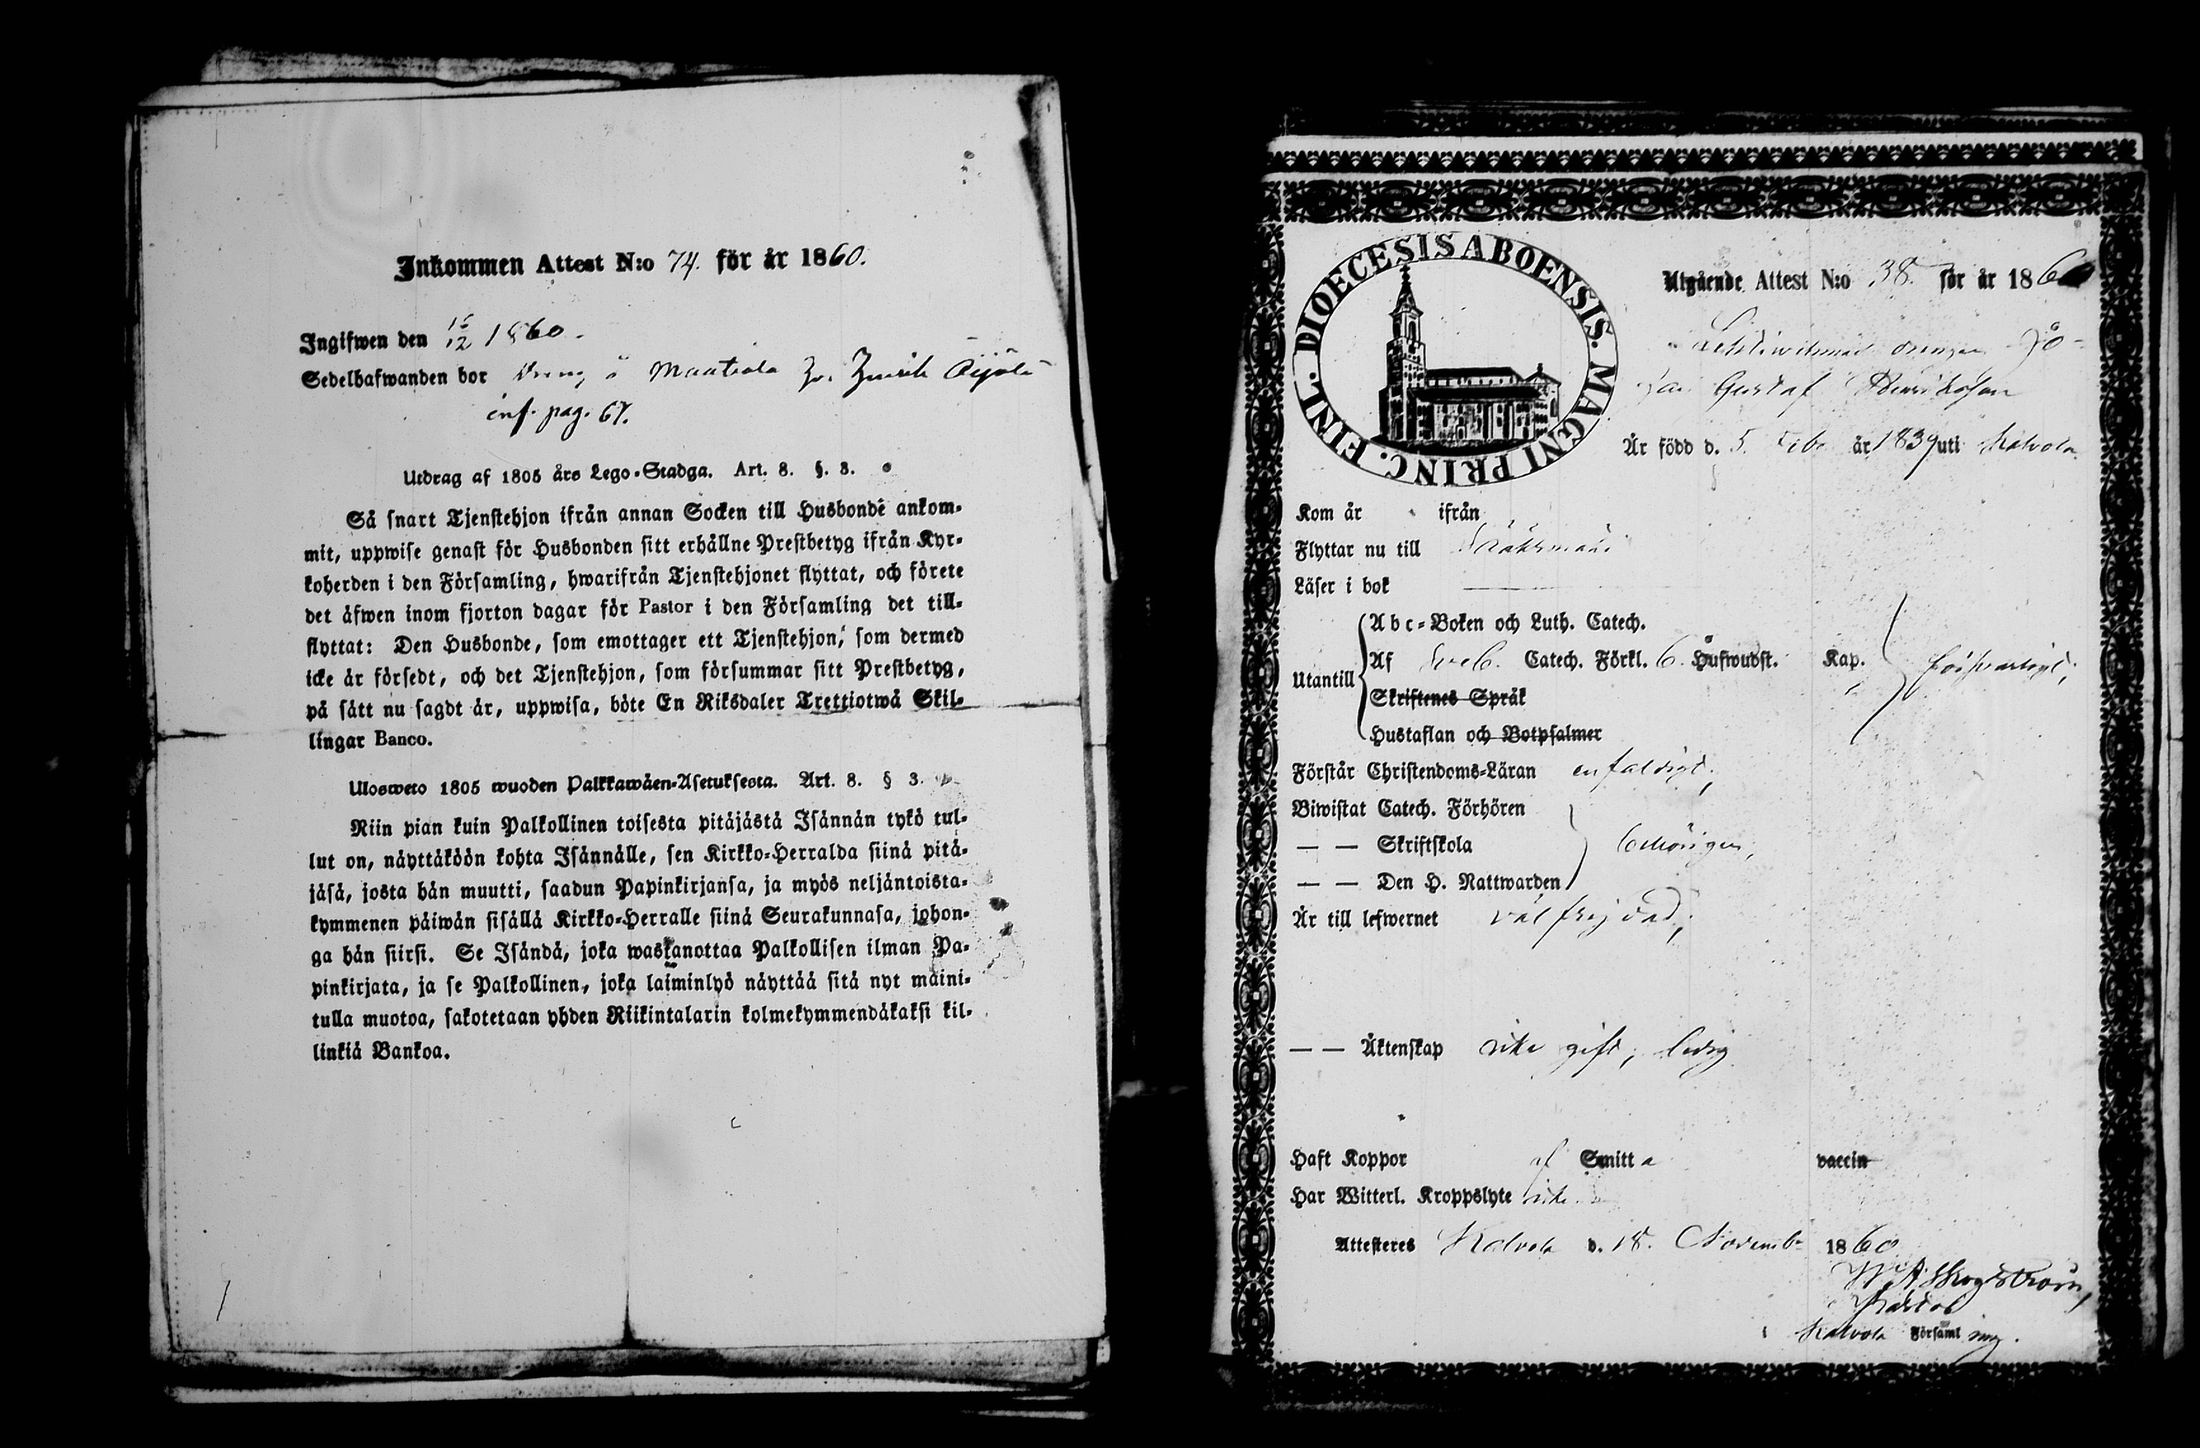 Inkommen Attest N:o 74. för år 1860.
Ingifwen den 15/12 1860.
Sedelhafwanden bor Dräng å Mantiala
inf. pag. 67.
Utdrag af 1805 års Lego-Stadga. Art. 8. §. 3.
Så snart Tjenstehjon ifrån annan Socken till Husbonde ankom-
mit, uppwise genast för Husbonden sitt erhållne Prestbetyg ifrån Kyr-
koherden i den Församling, hwarifrån Tjenstehjonet flyttat, och förete
det äfwen inom fjorton dagar för Pastor i den Församling det till-
flyttat: Den Husbonde, som emottager ett Tjenstehjon, som dermed
icke är försedt, och det Tjenstehjon, som försummar sitt Prestbetyg,
på sätt nu sagdt är, uppwisa, böte En Riksdaler Trettiotwå Skil-
lingar Banco.
Ulosweto 1805 wuoden Palkkawäen-Asetuksesta. Art. 8. § 3.
Niin pian kuin Palkollinen toisesta pitäjästä Isännän tykö tul-
lut on, näyttäköön kohta Isännälle, sen Kirkko-Herralda siinä pitä-
jäsä, josta hän muutti, saadun Papinkirjansa, ja myös neljäntoista-
kymmenen päiwän sisällä Kirkko-Herralle siinä Seurakunnasa, johon-
ga hän siirsi. Se Isändä, joka wastanottaa Palkollisen ilman Pa-
pinkirjata, ja se Palkollinen, joka laiminlyö näyttää sitä nyt maini-
tulla muotoa, sakotetaan yhden Riikintalarin kolmekymmendäkaksi kil-
linkiä Bankoa.
DIOECESIS ABOENSIS. MAGNI PRINC. FINL.
Utgående Attest N:o 38. för år 1860
drängen Jo-
han Gustaf Henriksson
Är född d. 5. Febr. år 1839 uti Kalvola
Kom år ifrån
Flyttar nu till Sääksmäki
Läser i bok
Utantill
Abc-Boken och Luth. Catech.
Af Sveb. Catech. Förkl. 6 Hufwudst. Kap. försvarligt,
Skriftenes Språk
Hustaflan och Botpsalmer
Förstår Christendoms-Läran enfaldigt,
Biwistat Catech. Förhören
— — Skriftskola behörigen,
— — Den H. Nattwarden
Är till lefwernet välfrejdad,
— — Äktenskap icke gift, ledig
Haft Koppor af Smitta vaccin
Har Witterl. Kroppslyte icke
Attesteres Kalvola d. 18. Novemb. 1860
Pastor
i Kalvola Församling.